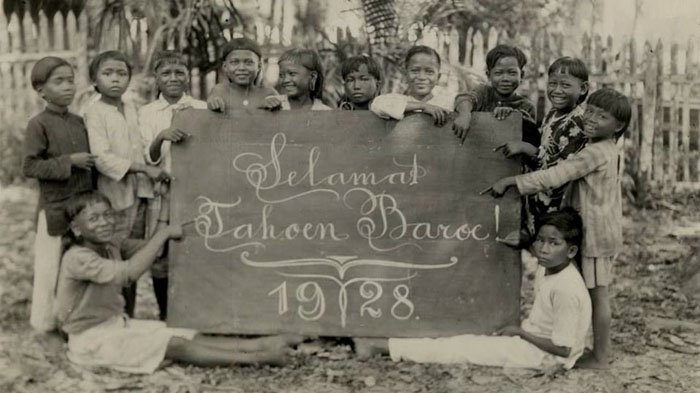 Selamat
Tahoen Baroe!
1928.